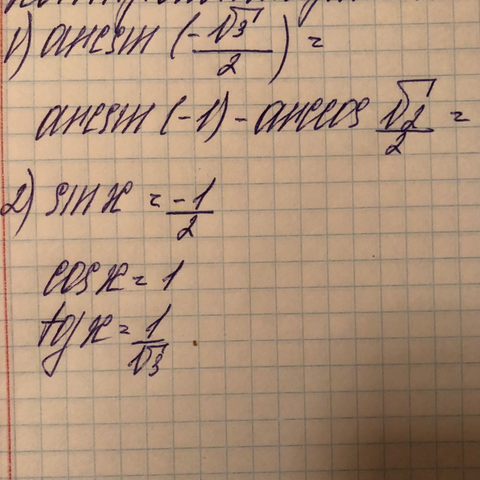 1) arcsin (-√3/2) =
arcsin (-1) - arccos √2/2 =
2) sin x = -1/2
cos x = 1
tg x = 1/√3